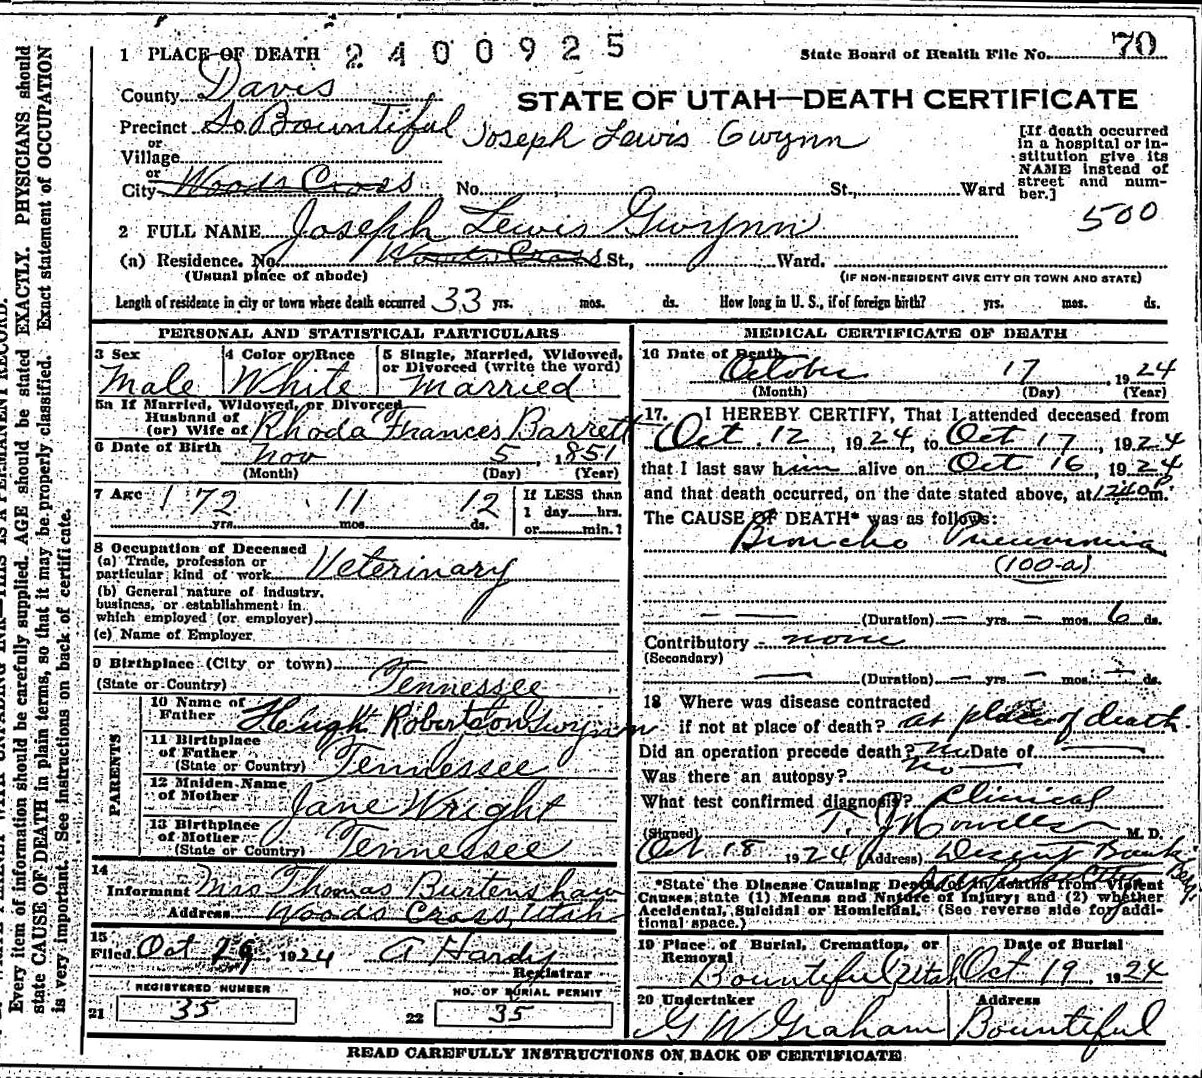 1 PLACE OF DEATH 2400925 State Board of Health File No. 70
County Davis
STATE OF UTAH—DEATH CERTIFICATE
Precinct So Bountiful Joseph Lewis Gwynn
or
Village
or
City Woods Cross No. St., Ward
[If death occurred
in a hospital or in-
stitution give its
NAME instead of
street and num-
ber.]
500
2 FULL NAME Joseph Lewis Gwynn
(a) Residence. No. Woods Cross St., Ward.
(Usual place of abode) (IF NON-RESIDENT GIVE CITY OR TOWN AND STATE)
Length of residence in city or town where death occurred 33 yrs. mos. ds. How long in U. S., if of foreign birth? yrs. mos. ds.
PERSONAL AND STATISTICAL PARTICULARS
3 Sex 4 Color or Race 5 Single, Married, Widowed,
or Divorced (write the word)
Male White Married
5a If Married, Widowed, or Divorced
Husband of
(or) Wife of Rhoda Frances Barrett
6 Date of Birth Nov 5, 1851
(Month) (Day) (Year)
7 Age 72 11 12 If LESS than
1 day hrs.
yrs. mos. ds. or min.?
8 Occupation of Deceased
(a) Trade, profession or
particular kind of work Veterinary
(b) General nature of industry,
business, or establishment in
which employed (or employer)
(c) Name of Employer
9 Birthplace (City or town)
(State or Country) Tennessee
PARENTS
10 Name of
Father Hugh Robertson Gwynn
11 Birthplace
of Father
(State or Country) Tennessee
12 Maiden Name
of Mother Jane Wright
13 Birthplace
of Mother
(State or Country) Tennessee
14
Informant Mrs Thomas Burtenshaw
Address Woods Cross, Utah
15
Filed Oct 29, 1924 A Hardy
Registrar
REGISTERED NUMBER NO. OF BURIAL PERMIT
21 35 22 35
MEDICAL CERTIFICATE OF DEATH
16 Date of Death
October 17, 1924
(Month) (Day) (Year)
17. I HEREBY CERTIFY, That I attended deceased from
Oct. 12, 1924, to Oct 17, 1924
that I last saw him alive on Oct 16, 1924
and that death occurred, on the date stated above, at 1240 P m.
The CAUSE OF DEATH* was as follows:
Broncho Pneumonia
(100-a)
(Duration) — yrs. — mos. 6 ds.
Contributory none
(Secondary)
(Duration) — yrs. — mos. — ds.
18 Where was disease contracted
if not at place of death? at place of death
Did an operation precede death? no Date of
Was there an autopsy? no
What test confirmed diagnosis? Clinical
(Signed) M. D.
Oct 18 1924 (Address)
*State the Disease Causing Death, or in deaths from Violent
Causes, state (1) Means and Nature of Injury; and (2) whether
Accidental, Suicidal or Homicidal. (See reverse side for addi-
tional space.)
19 Place of Burial, Cremation, or Date of Burial
Removal
Bountiful Utah Oct 19, 1924
20 Undertaker Address
G W Graham Bountiful
READ CAREFULLY INSTRUCTIONS ON BACK OF CERTIFICATE
Every item of information should be carefully supplied. AGE should be stated EXACTLY. PHYSICIANS should
state CAUSE OF DEATH in plain terms, so that it may be properly classified. Exact statement of OCCUPATION
is very important. See instructions on back of certificate.